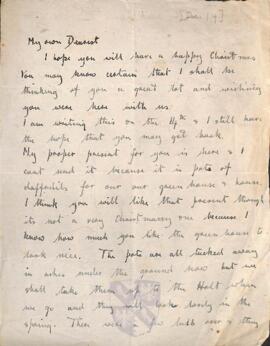 [Dec 19
My own Dearest
I hope you will have a happy Christmas
You may know certain that I shall be
thinking of you a great lot and wishing
you were here with us
I am writing this on the & I still have
the hope that you may get back.
My proper present for you is here & I
cant send it because it is pots of
daffodils for our our green house & house.
I think you will like that present though
its not a very Christmassy one because I
know how much you like the green house to
look nice. The pots are all tucked away
in ashes under the ground now but we
shall take them up to the Holt when
we go and they will look lovely in the
spring. There were a few bulbs over & they